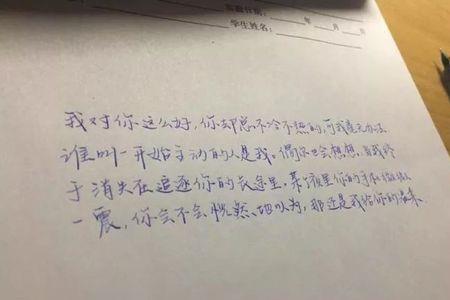 年 月 日
学生姓名:
我对你这么好,你却总不冷不热的,可我毫无办法
谁叫一开始主动的人是我。偶尔也会想想,当我终
于消失在追逐你的长途里,某日你的手机微微
一震,你会不会恍然地以为,那还是我给你的温柔